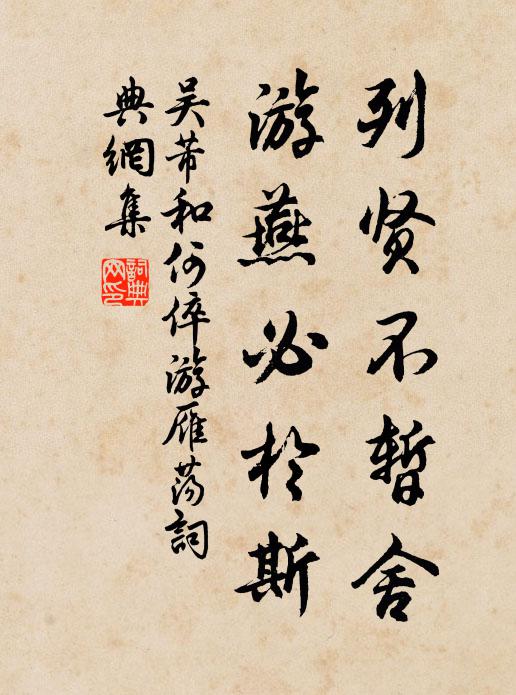 列贤不暫舍
游燕必於斯
吴芾和何倅游雁荡詞
典網集
詞典網印